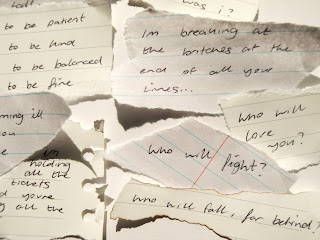 tall.
to be patient
to be kind
to be balanced
to be fine
was i?
Im breaking at
the britches at the
end of all your
lines...
who will
love
you?
who will fight?
who will fall, far behind?
ming ill
you
holding
all the
tickets
d youre
g all the